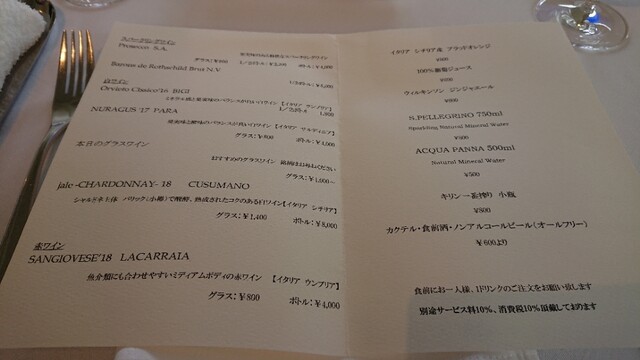 スパークリングワイン
Prosecco S.A.
Barons de Rothschild Brut N.V
白ワイン
Orvieto Clasico'16 BIGI
NURAGUS '17 PARA
グラス：￥800 ボトル：￥4,000
本日のグラスワイン
グラス：￥1,000～
jale -CHARDONNAY- '18 CUSUMANO
シャルドネ主体 バリック（小樽）で醗酵、熟成されたコクのある白ワイン【イタリア シチリア】
グラス：￥1,400 ボトル：￥8,000
赤ワイン
SANGIOVESE'18 LACARRAIA
魚介類にも合わせやすいミディアムボディの赤ワイン 【イタリア ウンブリア】
グラス：￥800 ボトル：￥4,000
イタリア シチリア産 ブラッドオレンジ
100%葡萄ジュース
ウィルキンソン ジンジャエール
S.PELLEGRINO 750ml
Sparkling Natural Mineral Water
ACQUA PANNA 500ml
Natural Mineral Water
￥500
キリン一番搾り 小瓶
￥800
カクテル・食前酒・ノンアルコールビール（オールフリー）
￥600より
食前にお一人様、1ドリンクのご注文をお願い致します
別途サービス料10%、消費税10%頂戴しております